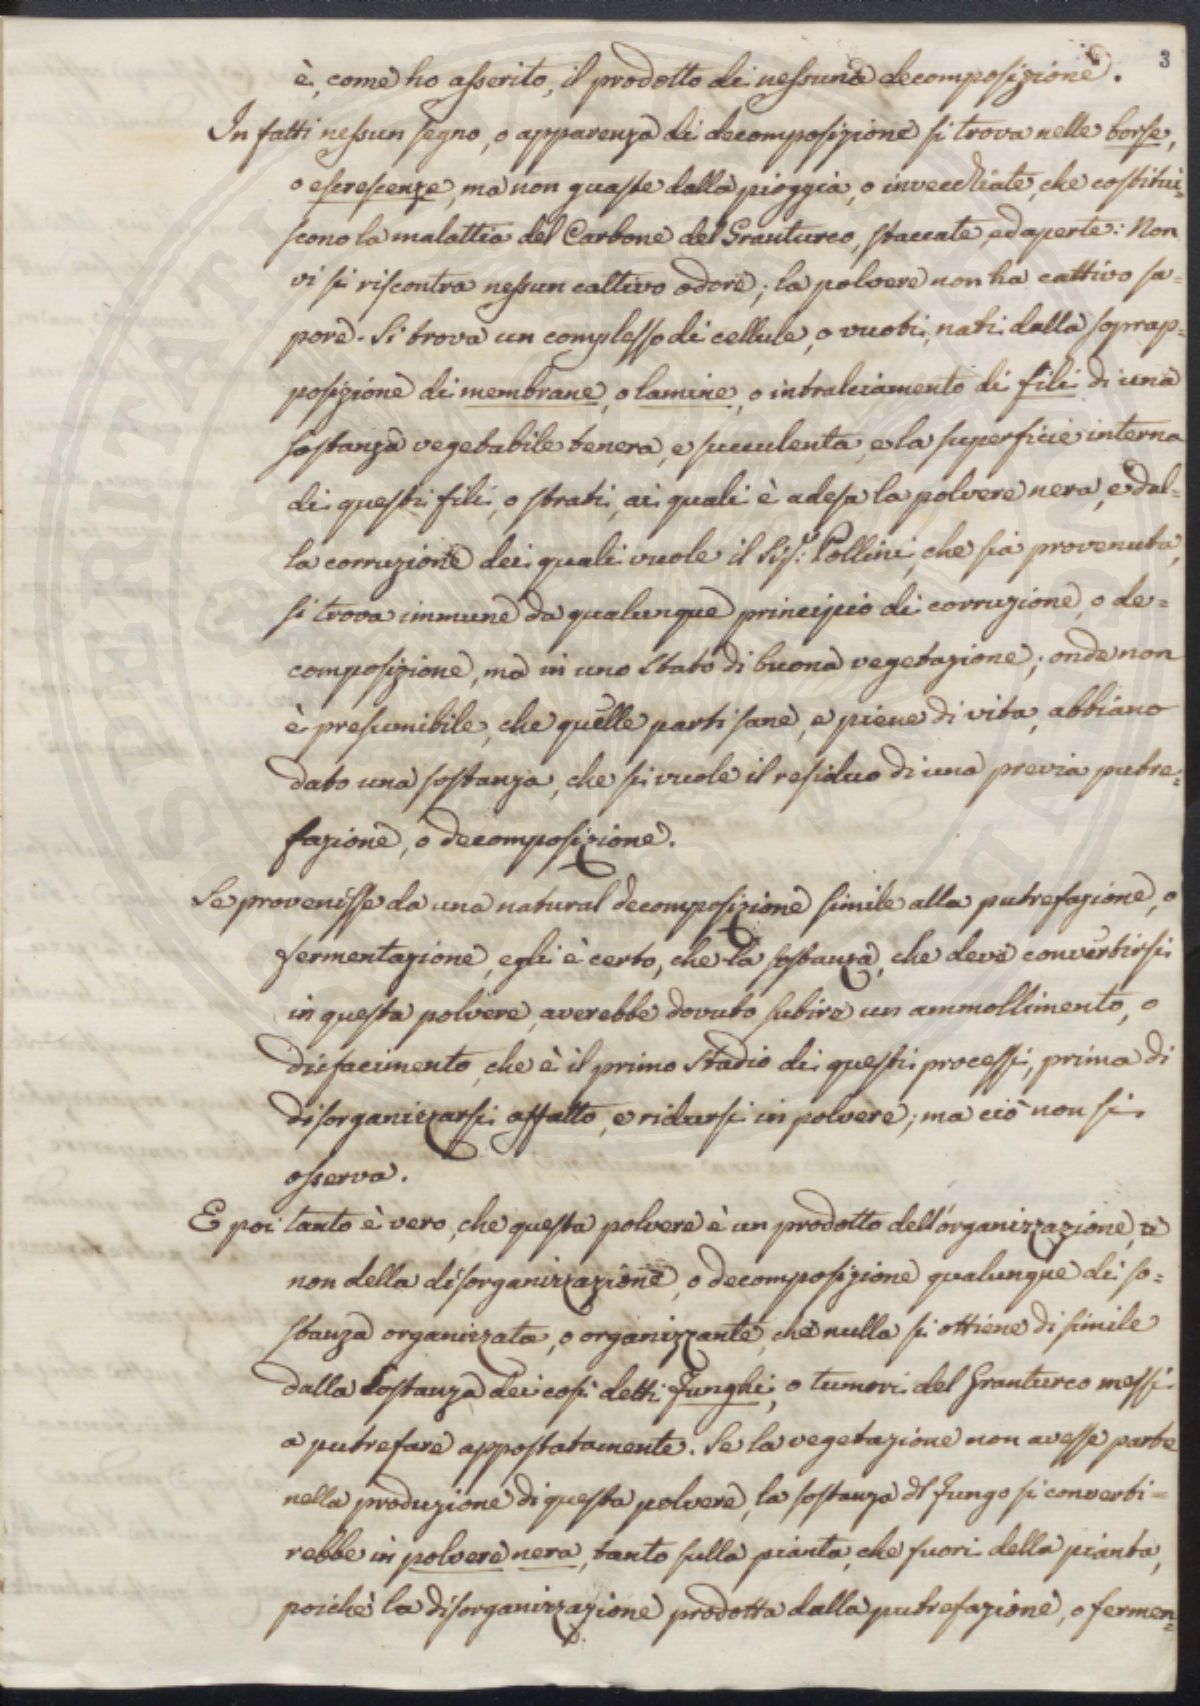 3
è, come ho asserito, il prodotto di nessuna decomposizione.
In fatti nessun segno, o apparenza di decomposizione si trova nelle borse,
o escrescenze, ma non guaste dalla pioggia, o invecchiate, che costitui=
scono la malattia del Carbone del Granturco, staccate, ed aperte: Non
vi si riscontra nessun cattivo odore; la polvere non ha cattivo sa=
pore. Si trova un complesso di cellule, o vuoti, nati dalla soprap=
posizione di membrane, o lamine, o intralciamento di fili di una
sostanza vegetabile tenera, e succulenta, e la superficie interna
di questi fili, o strati, ai quali è adesa la polvere nera, e dal=
la corruzione dei quali vuole il Sig.r Pollini, che sia provenuta,
si trova immune da qualunque principio di corruzione, o de=
composizione, ma in uno stato di buona vegetazione; onde non
è presumibile, che quelle parti sane, e piene di vita, abbiano
dato una sostanza, che si vuole il residuo di una previa putre=
fazione, o decomposizione.
Se provenisse da una natural decomposizione simile alla putrefazione, o
fermentazione, egli è certo, che la sostanza, che deve convertirsi
in questa polvere, averebbe dovuto subire un ammollimento, o
disfacimento, che è il primo stadio di questi processi, prima di
disorganizzarsi affatto, e ridursi in polvere; ma ciò non si
osserva.
E poi tanto è vero, che questa polvere è un prodotto dell'organizzazione, e
non della disorganizzazione, o decomposizione qualunque di so=
stanza organizzata, o organizzante, che nulla si ottiene di simile
dalla sostanza dei così detti funghi, o tumori del Granturco messi
a putrefare appostatamente. Se la vegetazione non avesse parte
nella produzione di questa polvere, la sostanza dl fungo si converti=
rebbe in polvere nera, tanto sulla pianta, che fuori della pianta,
poichè la disorganizzazione prodotta dalla putrefazione, o fermen=